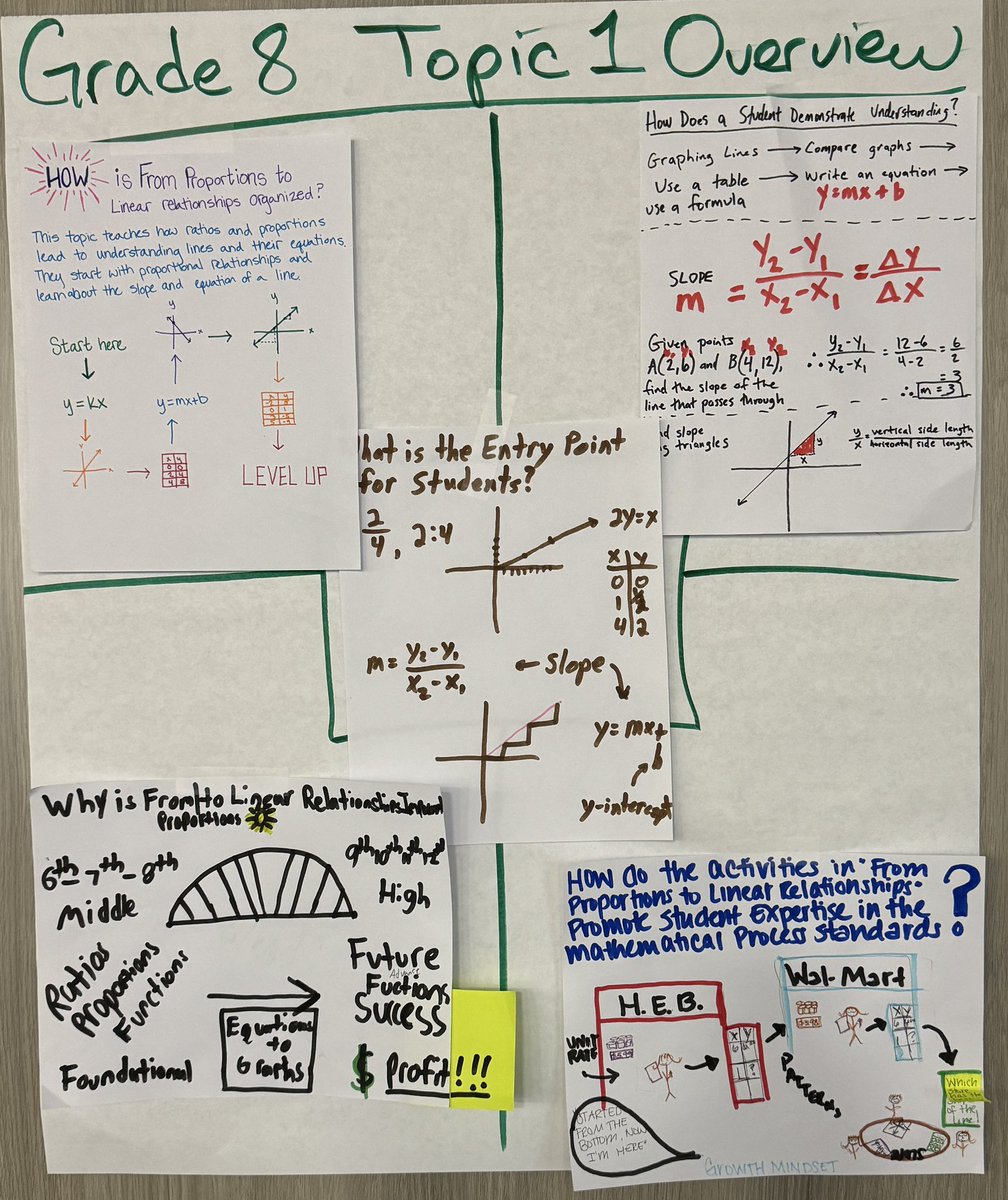 Grade 8 Topic 1 Overview
HOW is From Proportions to
Linear relationships organized?
This topic teaches how ratios and proportions
lead to understanding lines and their equations.
They start with proportional relationships and
learn about the slope and equation of a line.
Start here
y
x
y
x
y=kx
y=mx+b
LEVEL UP
How Does a Student Demonstrate Understanding?
Graphing Lines → Compare graphs →
Use a table → Write an equation →
use a formula y=mx+b
SLOPE
m = Y₂-Y₁ / X₂-X₁ = ΔY / ΔX
Given points
A(2,6) and B(4,12),
find the slope of the
line that passes through
∴ Y₂-Y₁ / X₂-X₁ = 12-6 / 4-2 = 6/2
= 3
∴ m=3
slope
triangles
y
x
y/x = vertical side length / horizontal side length
hat is the Entry Point
for Students?
2/4, 2:4
2y=x
X Y
0 0
1
4 2
m = Y₂-Y₁ / X₂-X₁
← Slope
y=mx+
b
y-intercept
Why is From to Linear Relationships
Proportions
6th-7th-8th
Middle
9th 10th 11th 12th
High
Ratios
Proportions
Functions
Foundational
Equations
to
Graphs
Future
Advance
Fuctions
Success
$ Profit!!!
How do the activities in "From
Proportions to Linear Relationships"
Promote Student Expertise in the
mathematical Process Standards?
H.E.B.
Wal-Mart
UNIT
RATE
X Y
X Y
PATTERNS
Which
store has the
of the
line
"STARTED
FROM THE
BOTTOM, NOW
I'M HERE"
GROWTH MINDSET